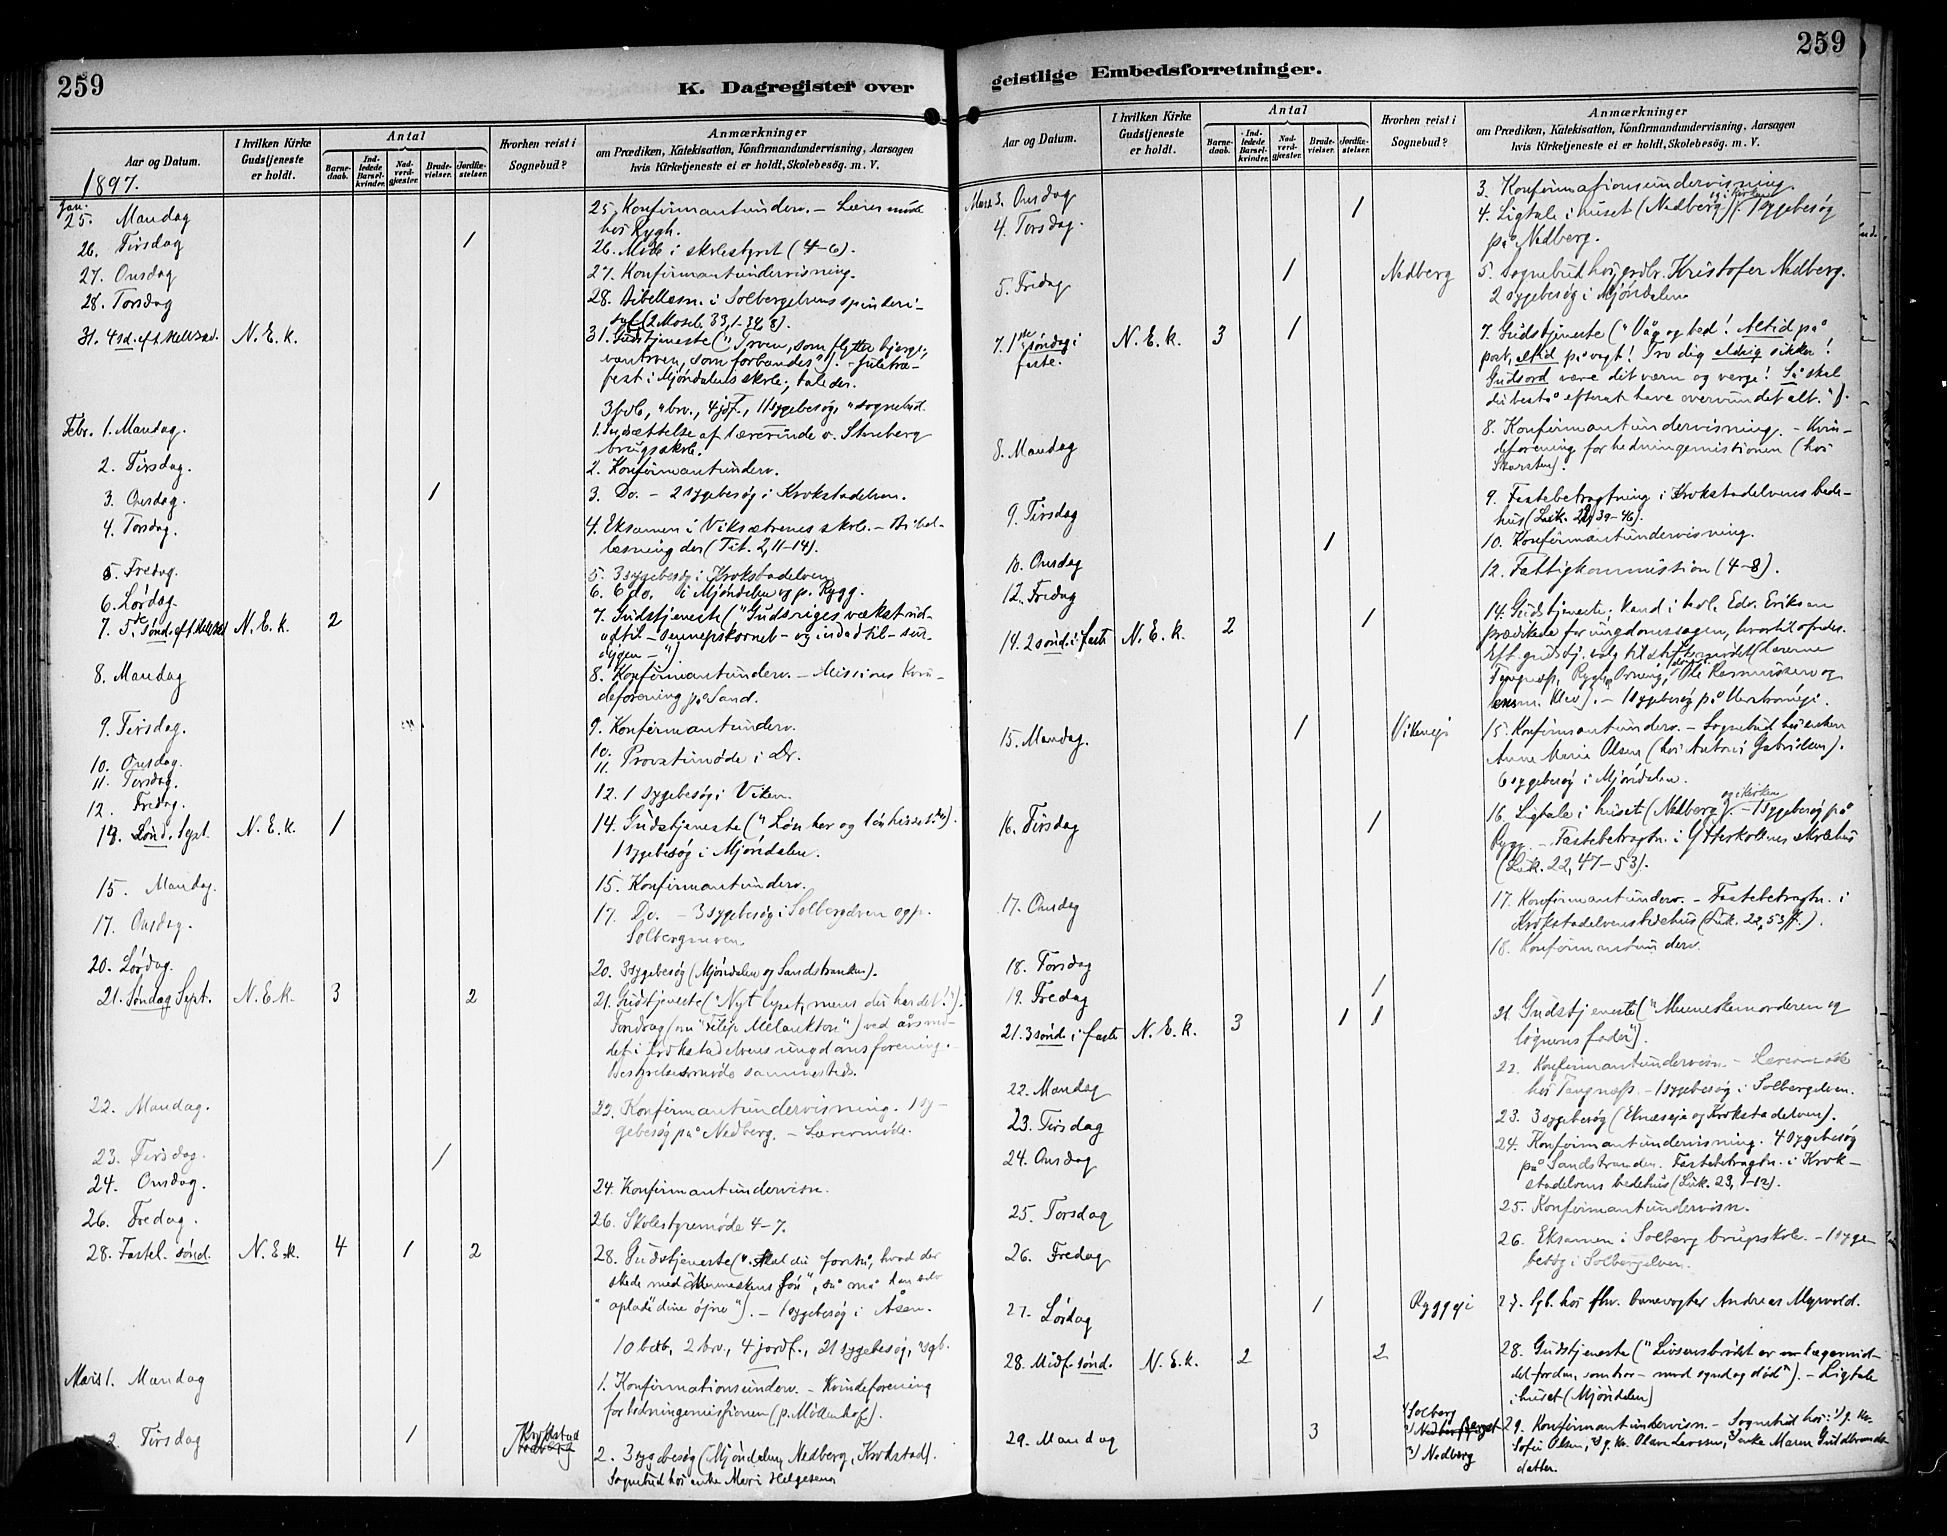 259
K. Dagregister over
Aar og Datum.
I hvilken Kirke Gudstjeneste er holdt.
Antal
Barnedaab.
Indledede Barselkvinder.
Nadverdgjester.
Brudevielser.
Jordfæstelser.
Hvorhen reist i Sognebud?
Anmærkninger
om Prædiken, Katekisation, Konfirmandundervisning, Aarsagen
hvis Kirketjeneste ei er holdt, Skolebesøg. m. V.
1897.
Jan. 25. Mandag
25. Konfirmantunderv. – Læremøde
hos Rygh.
26. Tirsdag 1
26. Møde i skolestyret (4-6).
27. Onsdag
27. Konfirmantundervisning.
28. Torsdag
28. Bibellæsn. i Solbergelvens spinderi-
(2 Moseb. 33, 1-
31. 4 sd. eft. Hell3kd. N. E. k.
31. Gudstjeneste ("Troen, som flytter bjerge,
vantroen, som forbandes"). – Juletræ-
fest i Mjøndalens skole; tale der.
3 brb, " brv., 4 jdf., 11 sygebesøg, " sognebud.
Febr. 1. Mandag.
1. Indsættelse af lærerinde v. Stenberg
brugsskole.
2. Tirsdag.
2. Konfirmantunderv.
3. Onsdag. 1
3. Do. – 2 sygebesøg i Krokstadelven.
4. Torsdag.
4. Eksamen i Viksætrenes skole. – Bibel-
læsning der (Tit. 2, 11-14).
5. Fredag.
5. 3 sygebesøg i Krokstadelven
6. Lørdag.
6. 6 do. i Mjøndalen og p. Rygg.
7. 5te sønd. eft. Hell3kd N. E. k. 2
7. Gudstjeneste ("Gudsriges vækst ud-
adtil – sennepskornet – og indadtil – sur-
dejgen – ")
8. Mandag
8. Konfirmantunderv. – Missions kvin-
deforening på Sand.
9. Tirsdag.
9. Konfirmantunderv.
10. Onsdag.
11. Torsdag.
10. 11. Provstimøde i Dr.
12. Fredag.
12. 1 sygebesøg i Viken.
14. Sønd. Sept. N. E. k. 1
14. Gudstjeneste ("Løn her og løn hisset").
1 sygebesøg i Mjøndalen.
15. Mandag.
15. Konfirmantunderv.
17. Onsdag.
17. Do. – 3 sygebesøg i Solbergelven og p.
Solbergmoen.
20. Lørdag.
20. 3 sygebesøg (Mjøndalen og Sandstranden).
21. Søndag Sept. N. E. k. 3 2
21. Gudstjeneste ("Nyt lyset, mens du har det!").
Foredrag (om "Filip Melankton") ved årsmø-
det i Krokstadelvens ungdomsforening. –
Bestyrelsesmøde sammesteds.
22. Mandag.
22. Konfirmantundervisning. 1 sy-
gebesøg på Nedberg. – Læremøde.
23. Tirsdag. 1
24. Onsdag.
24. Konfirmantundervisn.
26. Fredag.
26. Skolestyremøde 4-7.
28. Fastel. sønd. N. E. k. 4 1 2
28. Gudstjeneste ("Skal du forstå, hvad der
skede med "Menneskens søn", så må han selv
oplade dine øjne"). – 1 sygebesøg i Åsen.
10 bdb, 2 brv., 4 jordf., 21 sygebesøg, " sgb.
Mars 1. Mandag
1. Konfirmationsunderv. – Kvindeforening
for hedningemissionen (p. Møllenhof).
2. Tirsdag 1 Krokstad
Nedberg
2. 3 sygebesøg (Mjøndalen, Nedberg, Krokstad).
Sognebud hos enke Mari Helgesen
259
geistlige Embedsforretninger.
Aar og Datum.
I hvilken Kirke Gudstjeneste er holdt.
Antal
Barnedaab.
Indledede Barselkvinder.
Nadverdgjester.
Brudevielser.
Jordfæstelser.
Hvorhen reist i Sognebud?
Anmærkninger
om Prædiken, Katekisation, Konfirmandundervisning, Aarsagen
hvis Kirketjeneste ei er holdt, Skolebesøg. m. V.
Mars 3. Onsdag 1
3. Konfirmationsundervisning.
4. Torsdag.
4. Ligtale i huset (Nedberg) og i kirken. 1 sygebesøg
på Nedberg.
5. Fredag 1 Nedberg
5. Sognebud hos grdbr. Kristofer Nedberg.
2 sygebesøg i Mjøndalen
7. 1ste søndag i
faste. N. E. k. 3 1
7. Gudstjeneste ("Våg og bed! Altid på
post, altid på vagt! Tro dig aldrig sikker!
Gudsord være dit værn og verge! Så skal
du bestå efterat have overvundet alt.").
8. Mandag
8. Konfirmantundervisning. – Kvin-
deforening for hedningemissionen (hos
Skarsten).
9. Tirsdag
9. Fastebetragtning i Krokstadelvens bede-
hus (Luk. 22, 39-46).
10. Onsdag 1
10. Konfirmantundervisning.
12. Fredag
12. Fattigkommission (4-8).
14. 2 sønd. i faste N. E. k. 2 1
14. Gudstjeneste. Kand. i teol. Edv. Eriksen
prædikede for ungdomssagen, hvortil ofredes.
Eft. gudstj. valg til stiftsmødet (lærerne
Tangnæss, Rygh, Orning, Ole Rasmussen og
lensm. Klev). – 1 sygebesøg på
15. Mandag. 1 Vikeneje
15. Konfirmantunderv. – Sognebud hos enken
Anne Marie Olsen (hos Anton Gabrielsen).
6 sygebesøg i Mjøndalen.
16. Tirsdag 1
16. Ligtale i huset (Nedberg) og i kirken. – 1 sygebesøg på
Rygg. – Fastebetragtn. i Ytterkollens skolehus
(Luk. 22, 47-53).
17. Onsdag
17. Konfirmantunderv. – Fastebetragtn. i
Krokstadelvens bedehus (Luk. 22, 53 ff.).
18. Torsdag
18. Konfirmantunderv.
19. Fredag 1
21. 3 sønd. i faste N. E. k. 3 1 1
21. Gudstjeneste ("Menneskemorderen og
løgnens fader").
22. Mandag
22. Konfirmantundervisn. – Læremøde
hos Tangnæss. – 1 sygebesøg i Solbergelven.
23. Tirsdag
23. 3 sygebesøg (Eknæseje og Krokstadelven).
24. Onsdag
24. Konfirmantundervisning. 4 sygebesøg
på Sandstranden. Fastebetragtn. i Krok-
stadelvens bedehus (Luk. 23, 1-12).
25. Torsdag
25. Konfirmantundervisn.
26. Fredag
26. Eksamen i Solberg brugsskole. – 1 syge-
besøg i Solbergelven.
27. Lørdag 1 Ryggeje
27. Sgb. hos fhv. banevogter Andreas Myrvold.
28. Midf. sønd. N. E. k. 2 2
28. Gudstjeneste ("Livsensbrødet er lægemid-
det for den, som tror – mod synd og død"). – Ligtale
i huset (Mjøndalen)
29. Mandag 3
1) Solberg
2) Nedberg
3) Nedberg
29. Konfirmantundervisn. – Sognebud hos: 1) g. kv.
Sofie Olsen, 2) g. kv. Olava Larsen, 3) enke Maren Guldbrands-
datter.